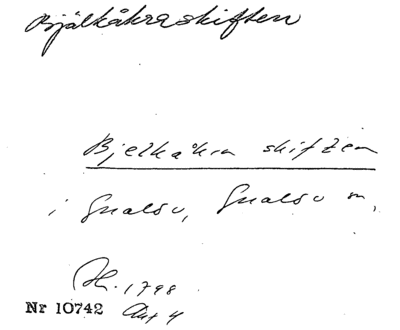 Bjälkåkraskiften
Bjelkåkra skiften
i Gualöv, Gualöv sn,
H. 1798
Nr 10742 Akt 4